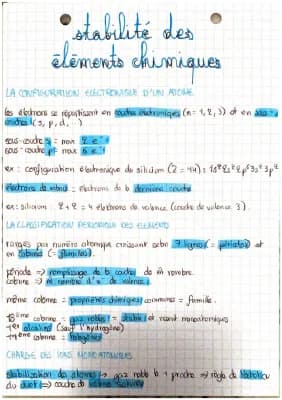 stabilité des
éléments chimiques
LA CONFIGURATION ELECTRONIQUE D'UN ATOME
les électrons se répartissent en couches électroniques (n = 1, 2, 3) et en sous-
couches (s, p, d, ..)
sous-couche s = max 2 e⁻
sous-couche p = max 6 e⁻
ex : configuration électronique du silicium (Z = 14) : 1s² 2s² 2p⁶ 3s² 3p²
électrons de valence = électrons de la dernière couche
ex : silicium : 2+2 = 4 électrons de valence (couche de valence 3)
LA CLASSIFICATION PERIODIQUE DES ELEMENTS
rangés par numéro atomique croissant selon 7 lignes (= périodes) et
en colonnes (= familles).
période => remplissage de la couche de m nombre.
colonne => m nombre d'e⁻ de valence
même colonne = propriétés chimiques communes = famille.
18ème colonne = gaz nobles = stables et restent monoatomiques
1ère alcalins (sauf l'hydrogène)
17ème colonne = halogènes
CHARGE DES IONS MONOATOMIQUES
stabilisation des atomes => gaz noble le + proche => règle de l'octet ou
du duet => couche de valence saturée